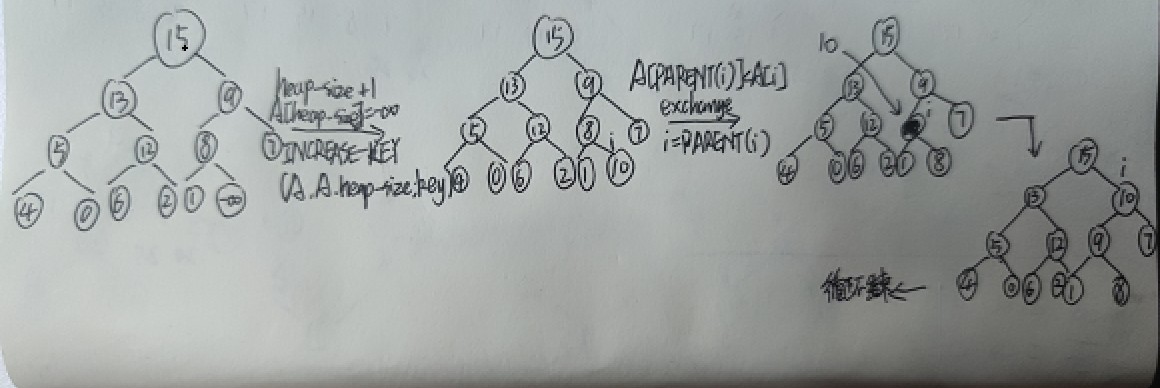 15
13 9
5 12 8 7
4 0 6 2 1 -∞
heap-size+1
A[heap-size]=-∞
INCREASE-KEY
(A.A.heap-size.key)
15
13 9
5 12 8 7
4 0 6 2 1 10
i
A[PARENT(i)]<A[i]
exchange
i=PARENT(i)
10
15
13 9
5 12 i 7
4 0 6 2 1 8
15
i
13 10
5 12 9 7
4 0 6 2 1 8
循环结束